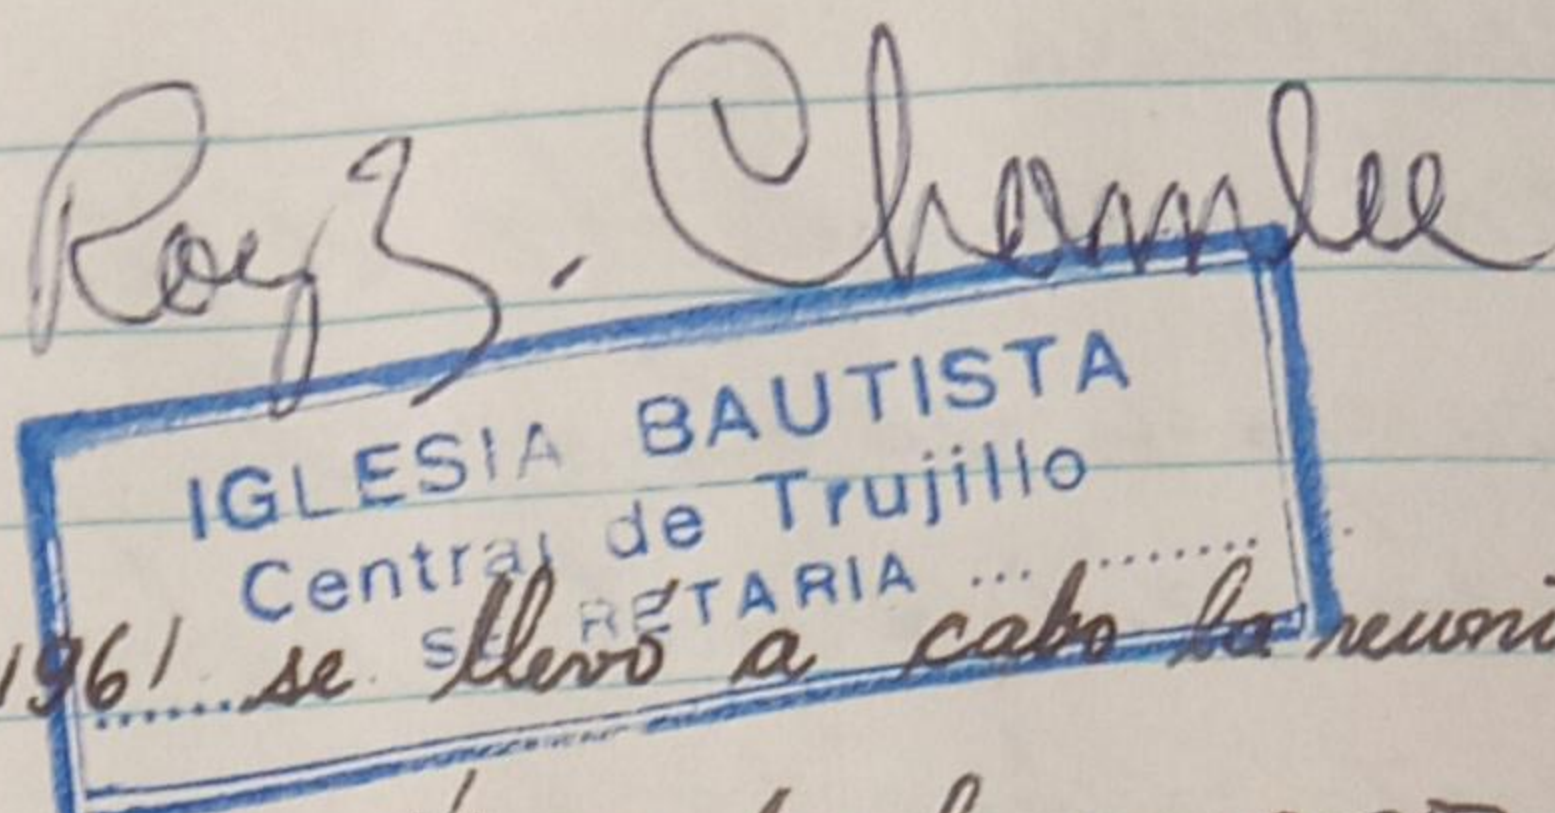 Roy Z. Chamlee
IGLESIA BAUTISTA
Central de Trujillo
SECRETARIA ... ........
1961 ...... se llevó a cabo la reuni